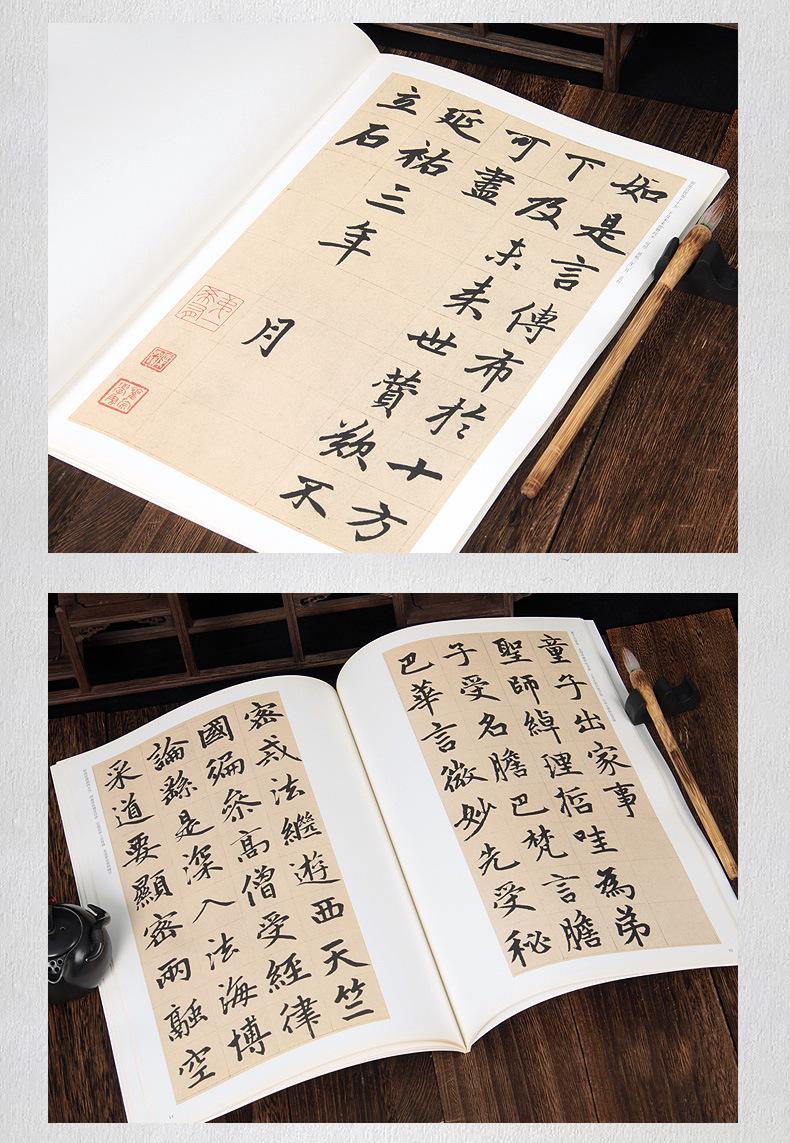 如是言傳布於十方
下及未来世賛歎不
可盡
延祐三年
月
立石
童子出家事
聖師綽理哲哇為弟
子受名膽巴梵言膽
巴華言微妙先受秘
密戒法繼遊西天竺
國徧叅高僧受經律
論繇是深入法海博
采道要顯密兩融空